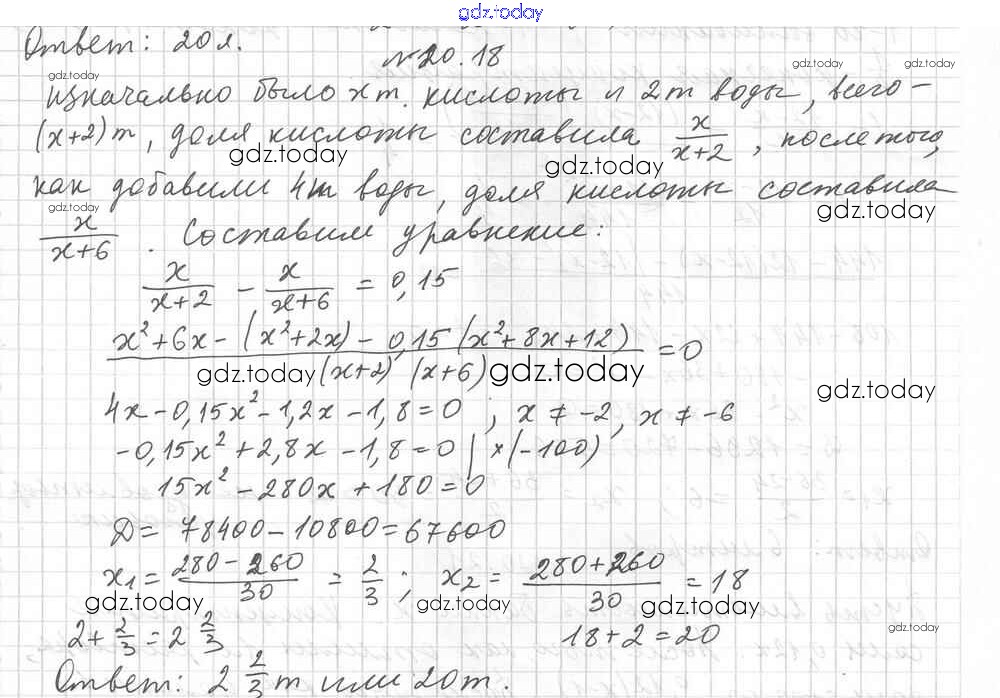 gdz.today
Ответ: 20 л.
№20.18
gdz.today gdz.today gdz.today
изначально было x т. кислоты и 2 т воды, всего –
(x+2) т, доля кислоты составила x/(x+2), после того,
gdz.today gdz.today
как добавили 4 т воды, доля кислоты составила
gdz.today gdz.today
x/(x+6). Составим уравнение:
x/(x+2) - x/(x+6) = 0,15
(x²+6x-(x²+2x)-0,15(x²+8x+12))/((x+2)(x+6)) = 0
gdz.today gdz.today gdz.today
4x-0,15x²-1,2x-1,8=0 ; x≠-2, x≠-6
-0,15x²+2,8x-1,8=0 | ×(-100)
15x²-280x+180=0
Д= 78400-10800=67600
x₁ = (280-260)/30 = 2/3 ; x₂ = (280+260)/30 = 18
gdz.today gdz.today gdz.today
2+2/3=2 2/3 18+2=20
gdz.today
Ответ: 2 2/3 т или 20 т.
gdz.today